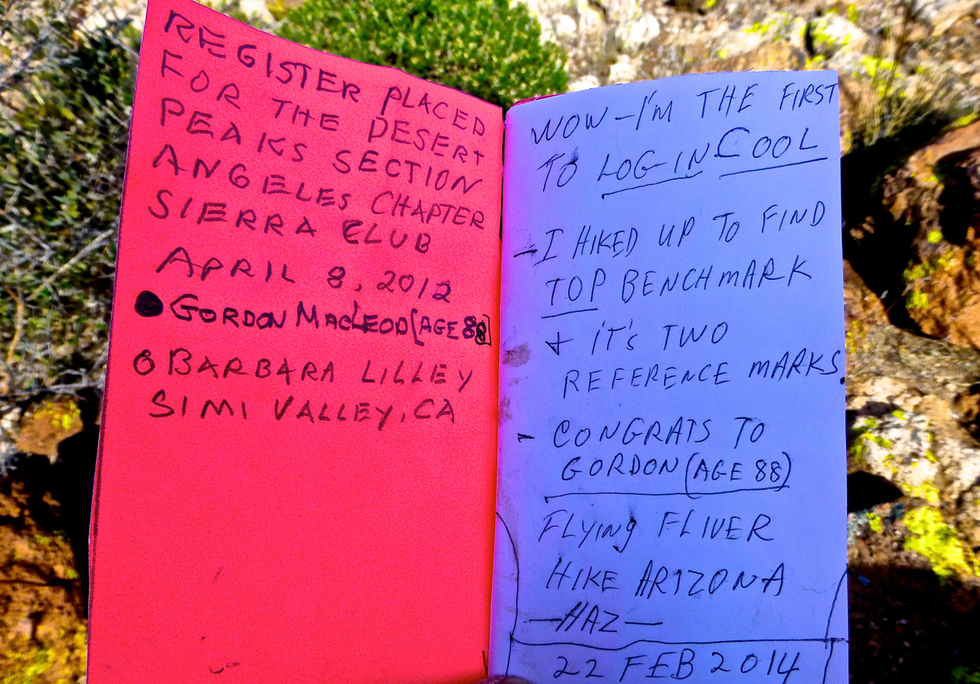 REGISTER PLACED
FOR THE DESERT
PEAKS SECTION
ANGELES CHAPTER
SIERRA CLUB
APRIL 8, 2012
● GORDON MACLEOD [AGE 88]
o BARBARA LILLEY
SIMI VALLEY, CA
WOW - I'M THE FIRST
TO LOG IN COOL
- I HIKED UP TO FIND
TOP BENCHMARK
+ IT'S TWO
REFERENCE MARKS.
- CONGRATS TO
GORDON (AGE 88)
FLYING FLIVER
HIKE ARIZONA
—HAZ—
22 FEB 2014